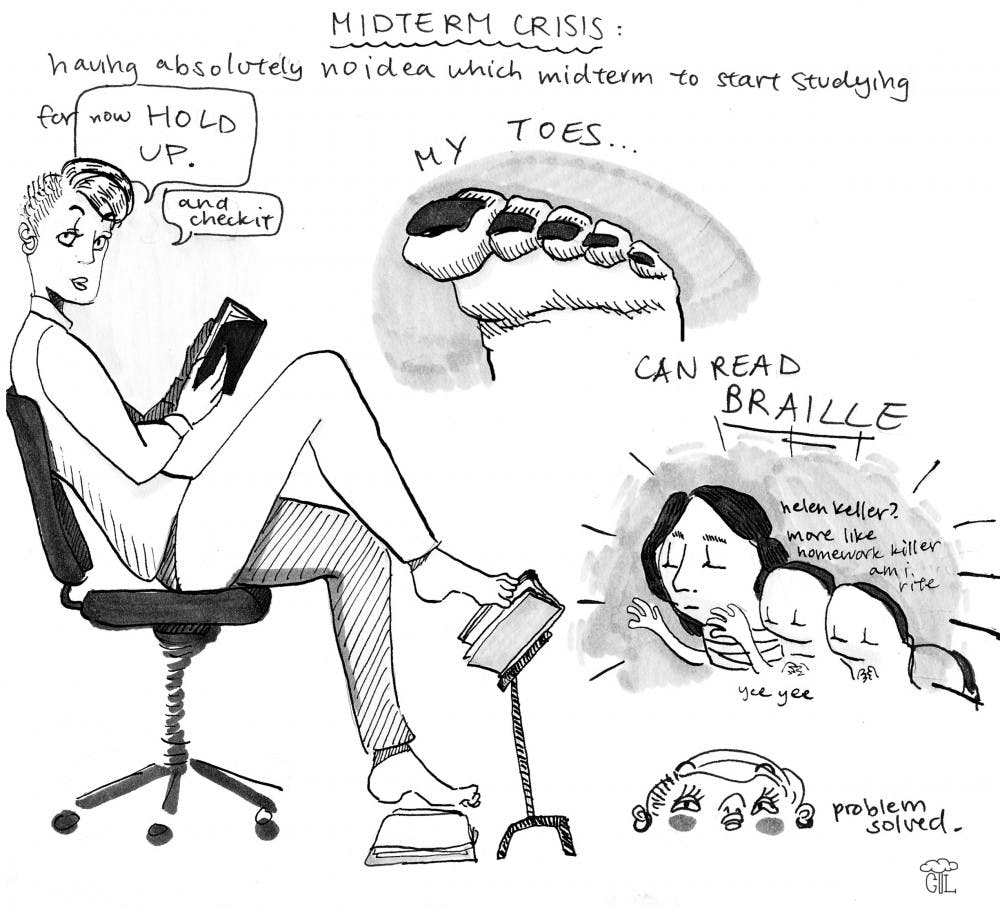 MIDTERM CRISIS:
having absolutely no idea which midterm to start studying
for
now HOLD
UP.
and
check it
MY TOES...
CAN READ
BRAILLE
helen keller?
more like
homework killer
am i
rite
yee yee
problem
solved.
GTL